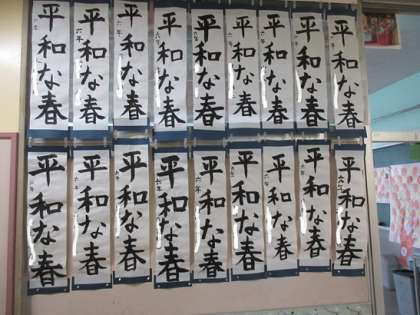 平和な春
六年
平和な春
平和な春
六年
平和な春
六年
平和な春
平和な春
六年
平和な春
平和な春
六年
平和な春
平和な春
六年
平和な春
平和な春
平和な春
平和な春
六年
平和な春
平和な春
平和な春
平和な春